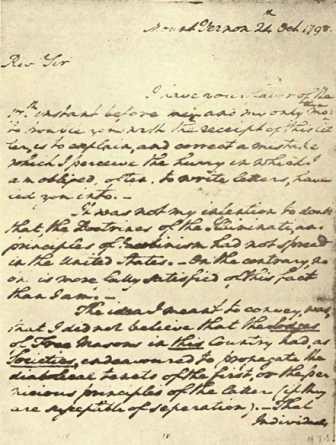 Mount Vernon 24th Oct. 1798.
Revd Sir
I have your favor of the
17th instant before me; and my only motive
to trouble you with the receipt of this let
ter, is to explain, and correct a mistake
which I perceive the hurry in which I
am obliged, often, to write letters, have
led you into.—
It was not my intention to doubt
that, the Doctrines of the Iluminati, and
principles of Jacobinism had not spread
in the United States.— On the contrary, no
one is more fully satisfied of this fact
than I am.—
The idea I meant to convey, was,
that I did not believe that the Lodges
of Free Masons in this Country had, as
Societies, endeavoured to propagate the
diabolical tenets of the first, or the per
nicious principles of the latter (if they
are susceptible of seperation).— That
Individuals